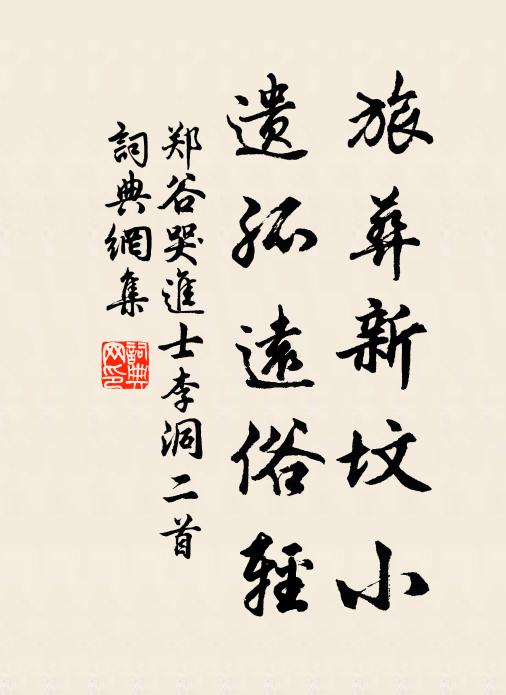 旅葬新坟小
遗孤远俗轻
郑谷哭進士李洞二首
詞典網集
詞典网印